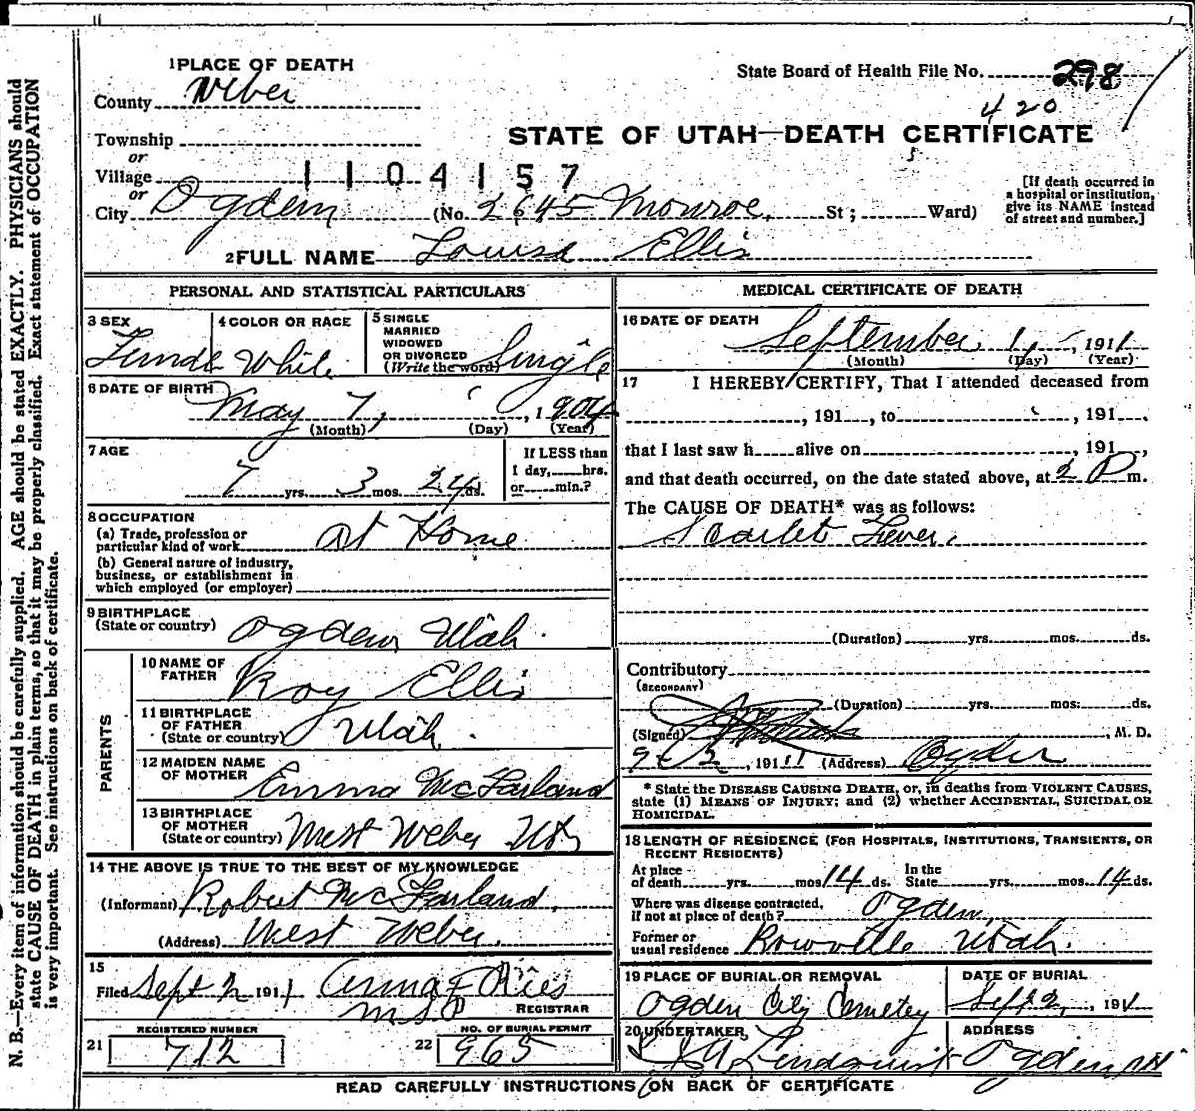 1 PLACE OF DEATH
County Weber
State Board of Health File No. 298
420
Township
or
STATE OF UTAH—DEATH CERTIFICATE
Village 1104157
or
City Ogden (No. 2645 Monroe, St; Ward)
[If death occurred in a hospital or institution, give its NAME instead of street and number.]
2 FULL NAME Louise Ellis
PERSONAL AND STATISTICAL PARTICULARS
3 SEX Female
4 COLOR OR RACE White
5 SINGLE MARRIED WIDOWED OR DIVORCED (Write the word) Single
6 DATE OF BIRTH May 7, 1904
(Month) (Day) (Year)
7 AGE
7 yrs. 3 mos. 24 ds.
If LESS than 1 day, hrs. or min.?
8 OCCUPATION
(a) Trade, profession or particular kind of work At Home
(b) General nature of industry, business, or establishment in which employed (or employer)
9 BIRTHPLACE
(State or country) Ogden Utah.
PARENTS
10 NAME OF FATHER Roy Ellis
11 BIRTHPLACE OF FATHER (State or country) Utah.
12 MAIDEN NAME OF MOTHER Emma McFarland
13 BIRTHPLACE OF MOTHER (State or country) West Weber Utah
14 THE ABOVE IS TRUE TO THE BEST OF MY KNOWLEDGE
(Informant) Robert McFarland,
(Address) West Weber.
15
Filed Sept 2 1911 Anna F Ries
REGISTRAR
REGISTERED NUMBER
21 712
NO. OF BURIAL PERMIT
22 965
MEDICAL CERTIFICATE OF DEATH
16 DATE OF DEATH September 1, 1911
(Month) (Day) (Year)
17 I HEREBY CERTIFY, That I attended deceased from
, 191 , to , 191 ,
that I last saw h alive on , 191 ,
and that death occurred, on the date stated above, at 2 P m.
The CAUSE OF DEATH* was as follows:
Scarlet Fever.
(Duration) yrs. mos. ds.
Contributory
(SECONDARY)
(Duration) yrs. mos. ds.
(Signed) , M. D.
9-2, 1911 (Address) Ogden
* State the DISEASE CAUSING DEATH, or, in deaths from VIOLENT CAUSES,
state (1) MEANS OF INJURY; and (2) whether ACCIDENTAL, SUICIDAL OR
HOMICIDAL.
18 LENGTH OF RESIDENCE (FOR HOSPITALS, INSTITUTIONS, TRANSIENTS, OR
RECENT RESIDENTS)
At place of death yrs. mos 14 ds. In the State yrs. mos. 14 ds.
Where was disease contracted, if not at place of death? Ogden,
Former or usual residence Utah.
19 PLACE OF BURIAL OR REMOVAL
Ogden City Cemetery
DATE OF BURIAL
Sept 2, 1911
20 UNDERTAKER
Lindquist
ADDRESS
Ogden
READ CAREFULLY INSTRUCTIONS ON BACK OF CERTIFICATE
N. B.—Every item of information should be carefully supplied. AGE should be stated EXACTLY. PHYSICIANS should
state CAUSE OF DEATH in plain terms, so that it may be properly classified. Exact statement of OCCUPATION
is very important. See instructions on back of certificate.